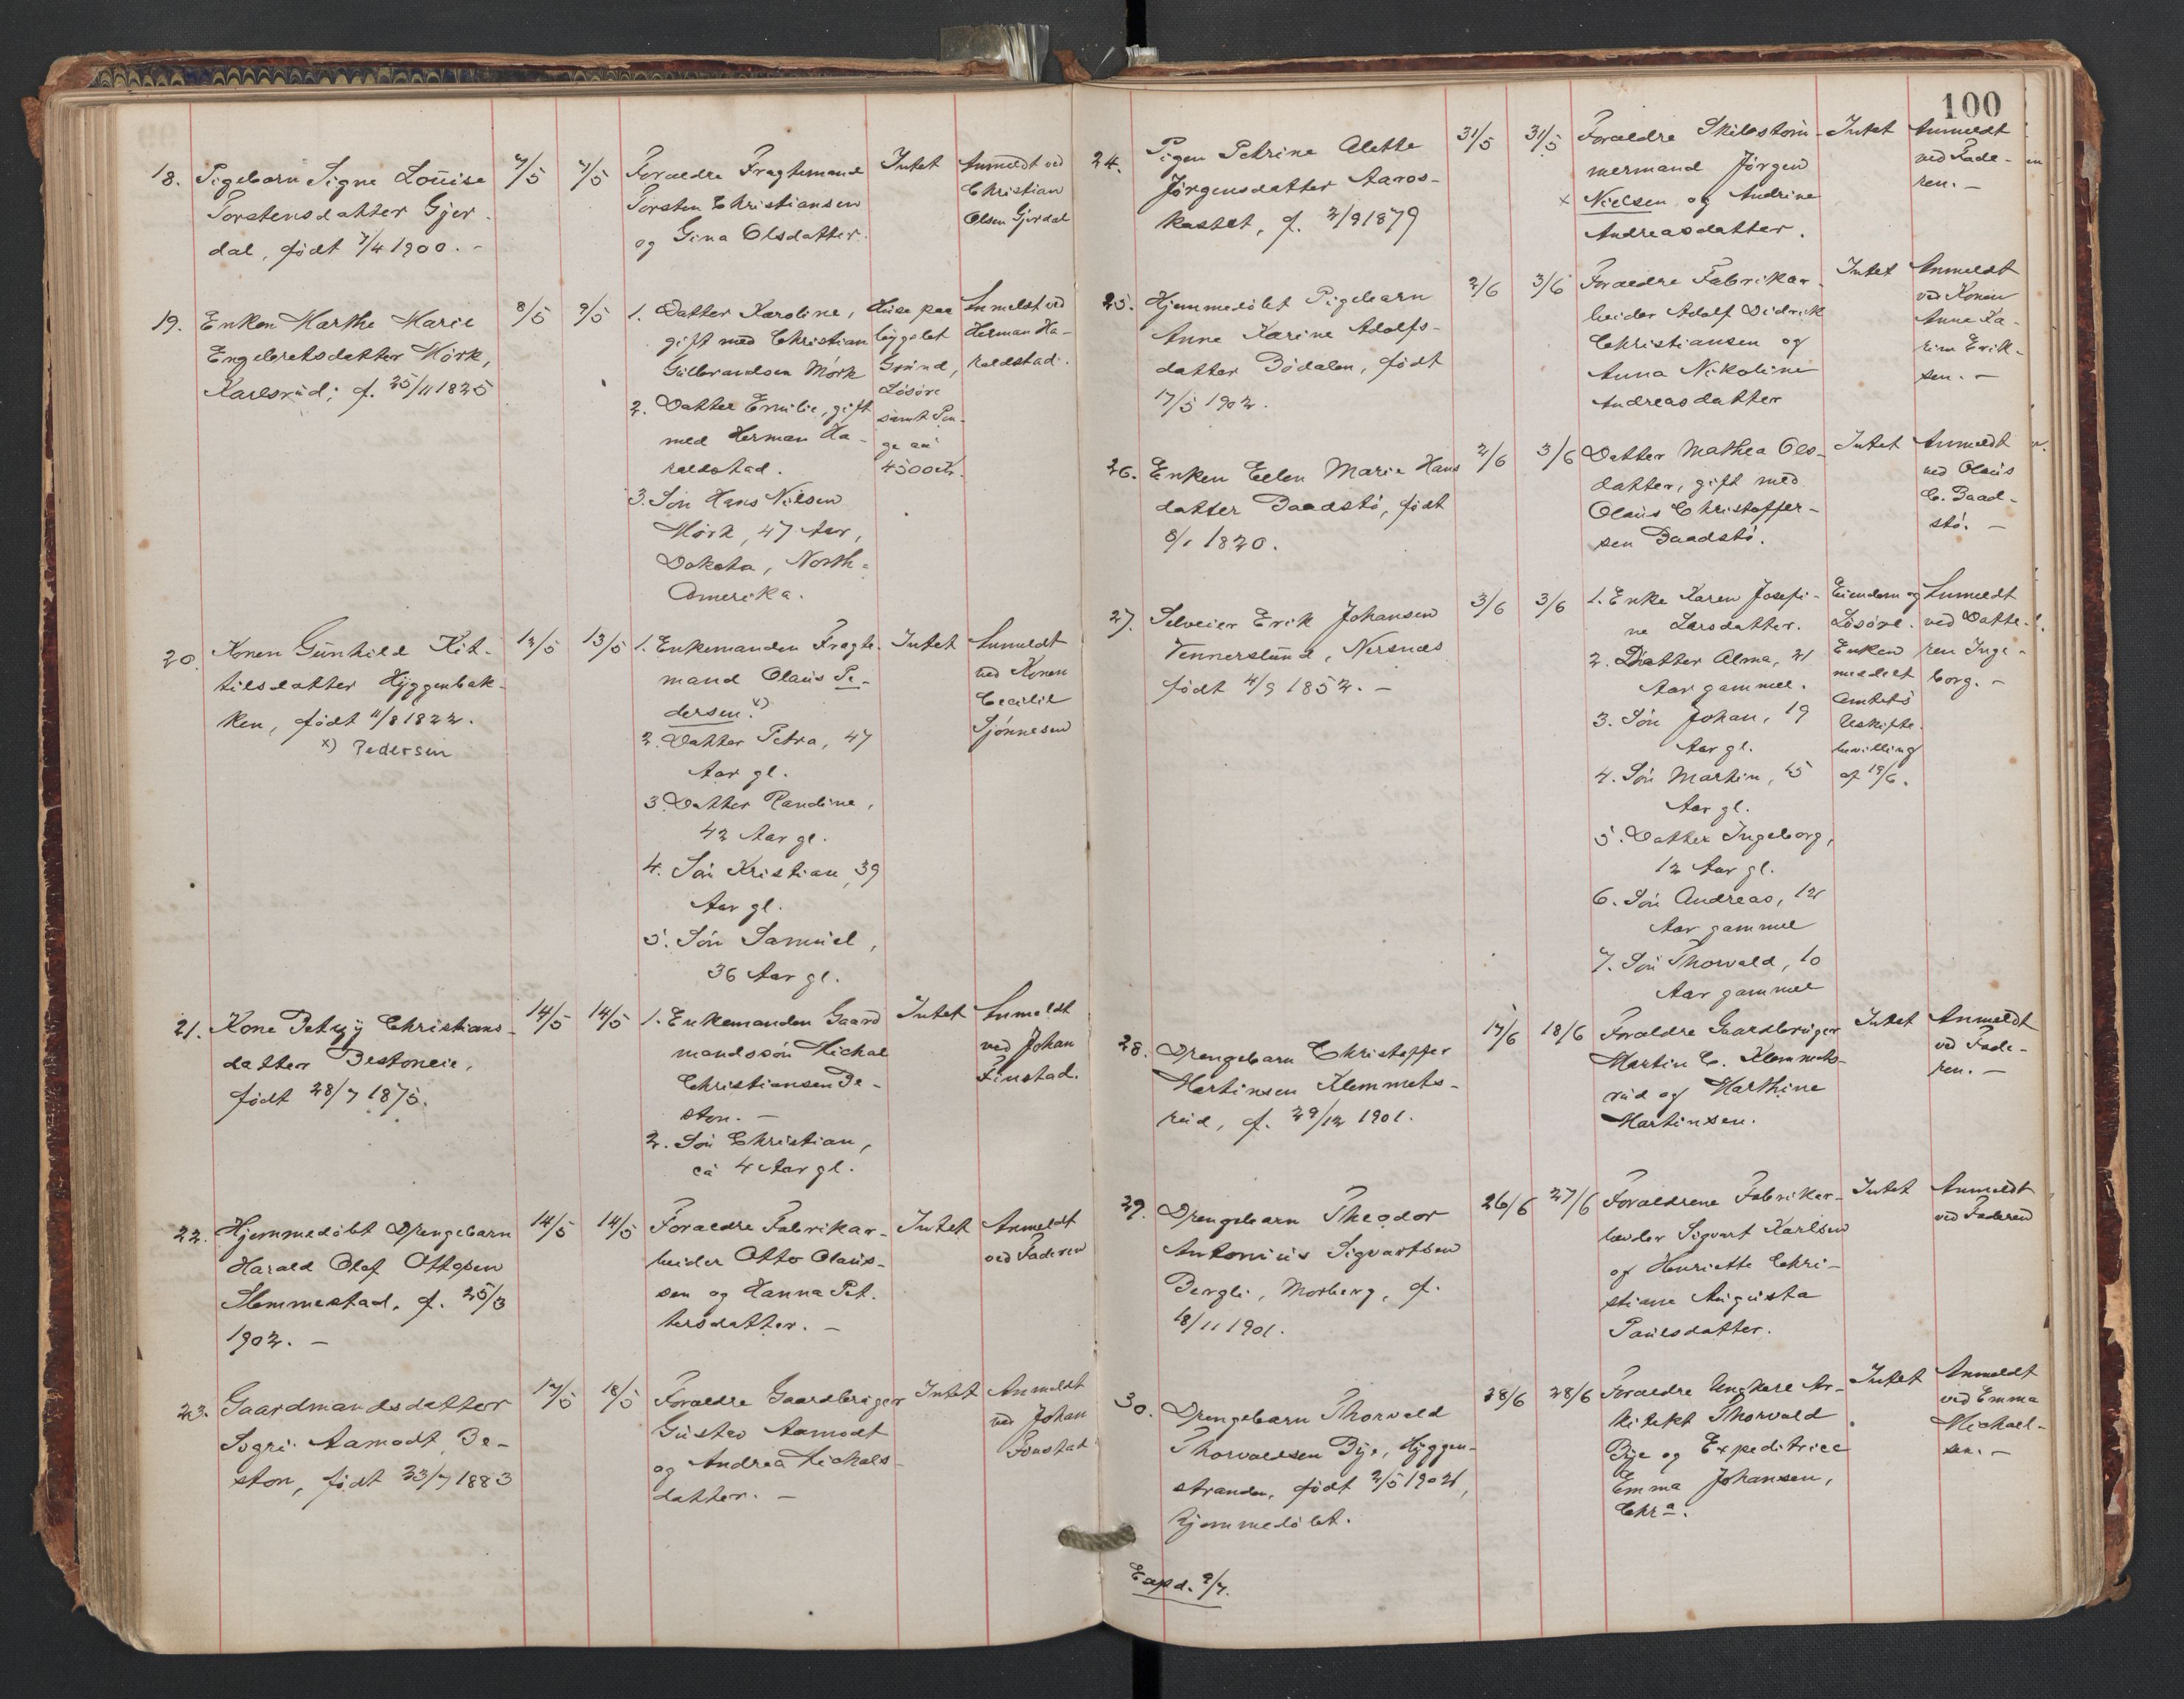 18. Pigebarn Signe Louise
Torstensdatter Gjer-
dal, født 7/4 1900. -
7/5 7/5
Foraldre Fragtemand
Torsten Christiansen
og Gina Olsdatter.
Intet
Anmeldt ved
Christian
Olsen Gjerdal
19. Enken Marthe Marie
Engebretsdatter Mörk,
Karlsrud; f. 25/11 1825
8/5 9/5
1. Datter Karoline,
gift med Christian
Gulbrandsen Mörk
2. Datter Emilie, gift
med Herman Ha-
raldstad.
3. Sön Hans Nilsen
Mörk, 47 Aar,
Dakota, North-
Amerika.
Huse paa
bygslet
Grund,
Lösöre
samt Pen-
ge
4500 Kr.
Anmeldt ved
Herman Ha-
raldstad.
20. Konen Gunhild Kit-
tilsdatter Hyggenbak-
ken, født 11/8 1822.
x) Pedersen
12/5 13/5
1. Enkemanden Fragte-
mand Olaus Pe-
dersen. x)
2. Datter Petra, 47
Aar gl.
3. Datter Randine,
42 Aar gl.
4. Sön Kristian, 39
Aar gl.
5. Sön Samuel,
36 Aar gl.
Intet
Anmeldt
ved Konen
Cecilie
Sjönnesen
21. Kone Petry Christians-
datter Bestoneie,
født 28/7 1875.
14/5 14/5
1. Enkemanden Gaard
mandssön Michal
Christiansen Be-
ston. -
2. Sön Christian,
ca 4 Aar gl.
Intet
Anmeldt
ved Johan
Finstad.
22. Hjemmedöbt Drengebarn
Harald Olaf Ottosen
Slemmestad, f. 25/3
1902. -
14/5 14/5
Foraldre Fabrikar-
beider Otto Olaus-
sen og Hanna Pet-
tersdatter. -
Intet
Anmeldt
ved Faderen
23. Gaardmandsdatter
Sygri Aamodt Be-
ston, født 23/7 1883
17/5 18/5
Foraldre Gaardbruger
Gustav Aamodt
og Andrea Michals-
datter. -
Intet
Anmeldt
ved Johan
100
24. Pigen Petrine Alette
Jörgensdatter Aaros-
kastet, f. 2/9 1879
31/5 31/5
Foraldre Skibstöm-
mermand Jörgen
x Nielsen og Andrine
Andreasdatter.
Intet
Anmeldt
ved Fade-
ren. -
25. Hjemmedöbt Pigebarn
Anne Karine Adolfs-
datter Bödalen, født
17/5 1902.
2/6 3/6
Foraldre Fabrikar-
beider Adolf Didrik
Christiansen og
Anna Nikoline
Andreasdatter
Intet
Anmeldt
ved Konen
Anne Ka-
rine Erik-
sen. -
26. Enken Ellen Marie Hans
datter Baadstö, født
8/1 1820.
2/6 3/6
Datter Mathea Ols-
datter, gift med
Olaus Christoffer-
sen Baadstö.
Intet
Anmeldt
ved Olaus
C. Baad-
stö. -
27. Selveier Erik Johansen
Vennerslund, Nersnæs
født 4/9 1852. -
3/6 3/6
1. Enke Karen Josefi-
ne Larsdatter.
2. Datter Alma, 21
Aar gammel.
3. Sön Johan, 19
Aar gl.
4. Sön Martin, 15
Aar gl.
5. Datter Ingeborg,
12 Aar gl.
6. Sön Andreas, 12
Aar gammel
7. Sön Thorvald, 10
Aar gammel
Eiendom og
Lösöre.
Enken
meddelt
Amtets
Uskifte-
bevilling
af 19/6.
Anmeldt
ved Datte-
ren Inge-
borg. -
28. Drengebarn Christoffer
Martinsen Klemmets-
rud, f. 29/12 1901.
17/6 18/6
Foraldre Gaardbruger
Martin C. Klemmets-
rud og Marthine
Martinsen.
Intet
Anmeldt
ved Fade-
ren. -
29. Drengebarn Theodor
Antonius Sigvartsen
Bergli, Morberg, f.
18/11 1901.
26/6 27/6
Foraldrene Fabrikar-
beider Sigvart Karlsen
og Henriette Chri-
stiane Augusta
Paulsdatter.
Intet
Anmeldt
ved Faderen
30. Drengebarn Thorvald
Thorvaldsen Bye, Hyggen-
stranden, født 2/5 1902,
hjemmedöbt.
28/6 28/6
Foraldre Ungkarl Ar-
kitekt Thorvald
Bye og Expeditrice
Emma Johansen,
Chra.
Intet
Anmeldt
ved Emma
Michael-
sen. -
Expd. 9/7.